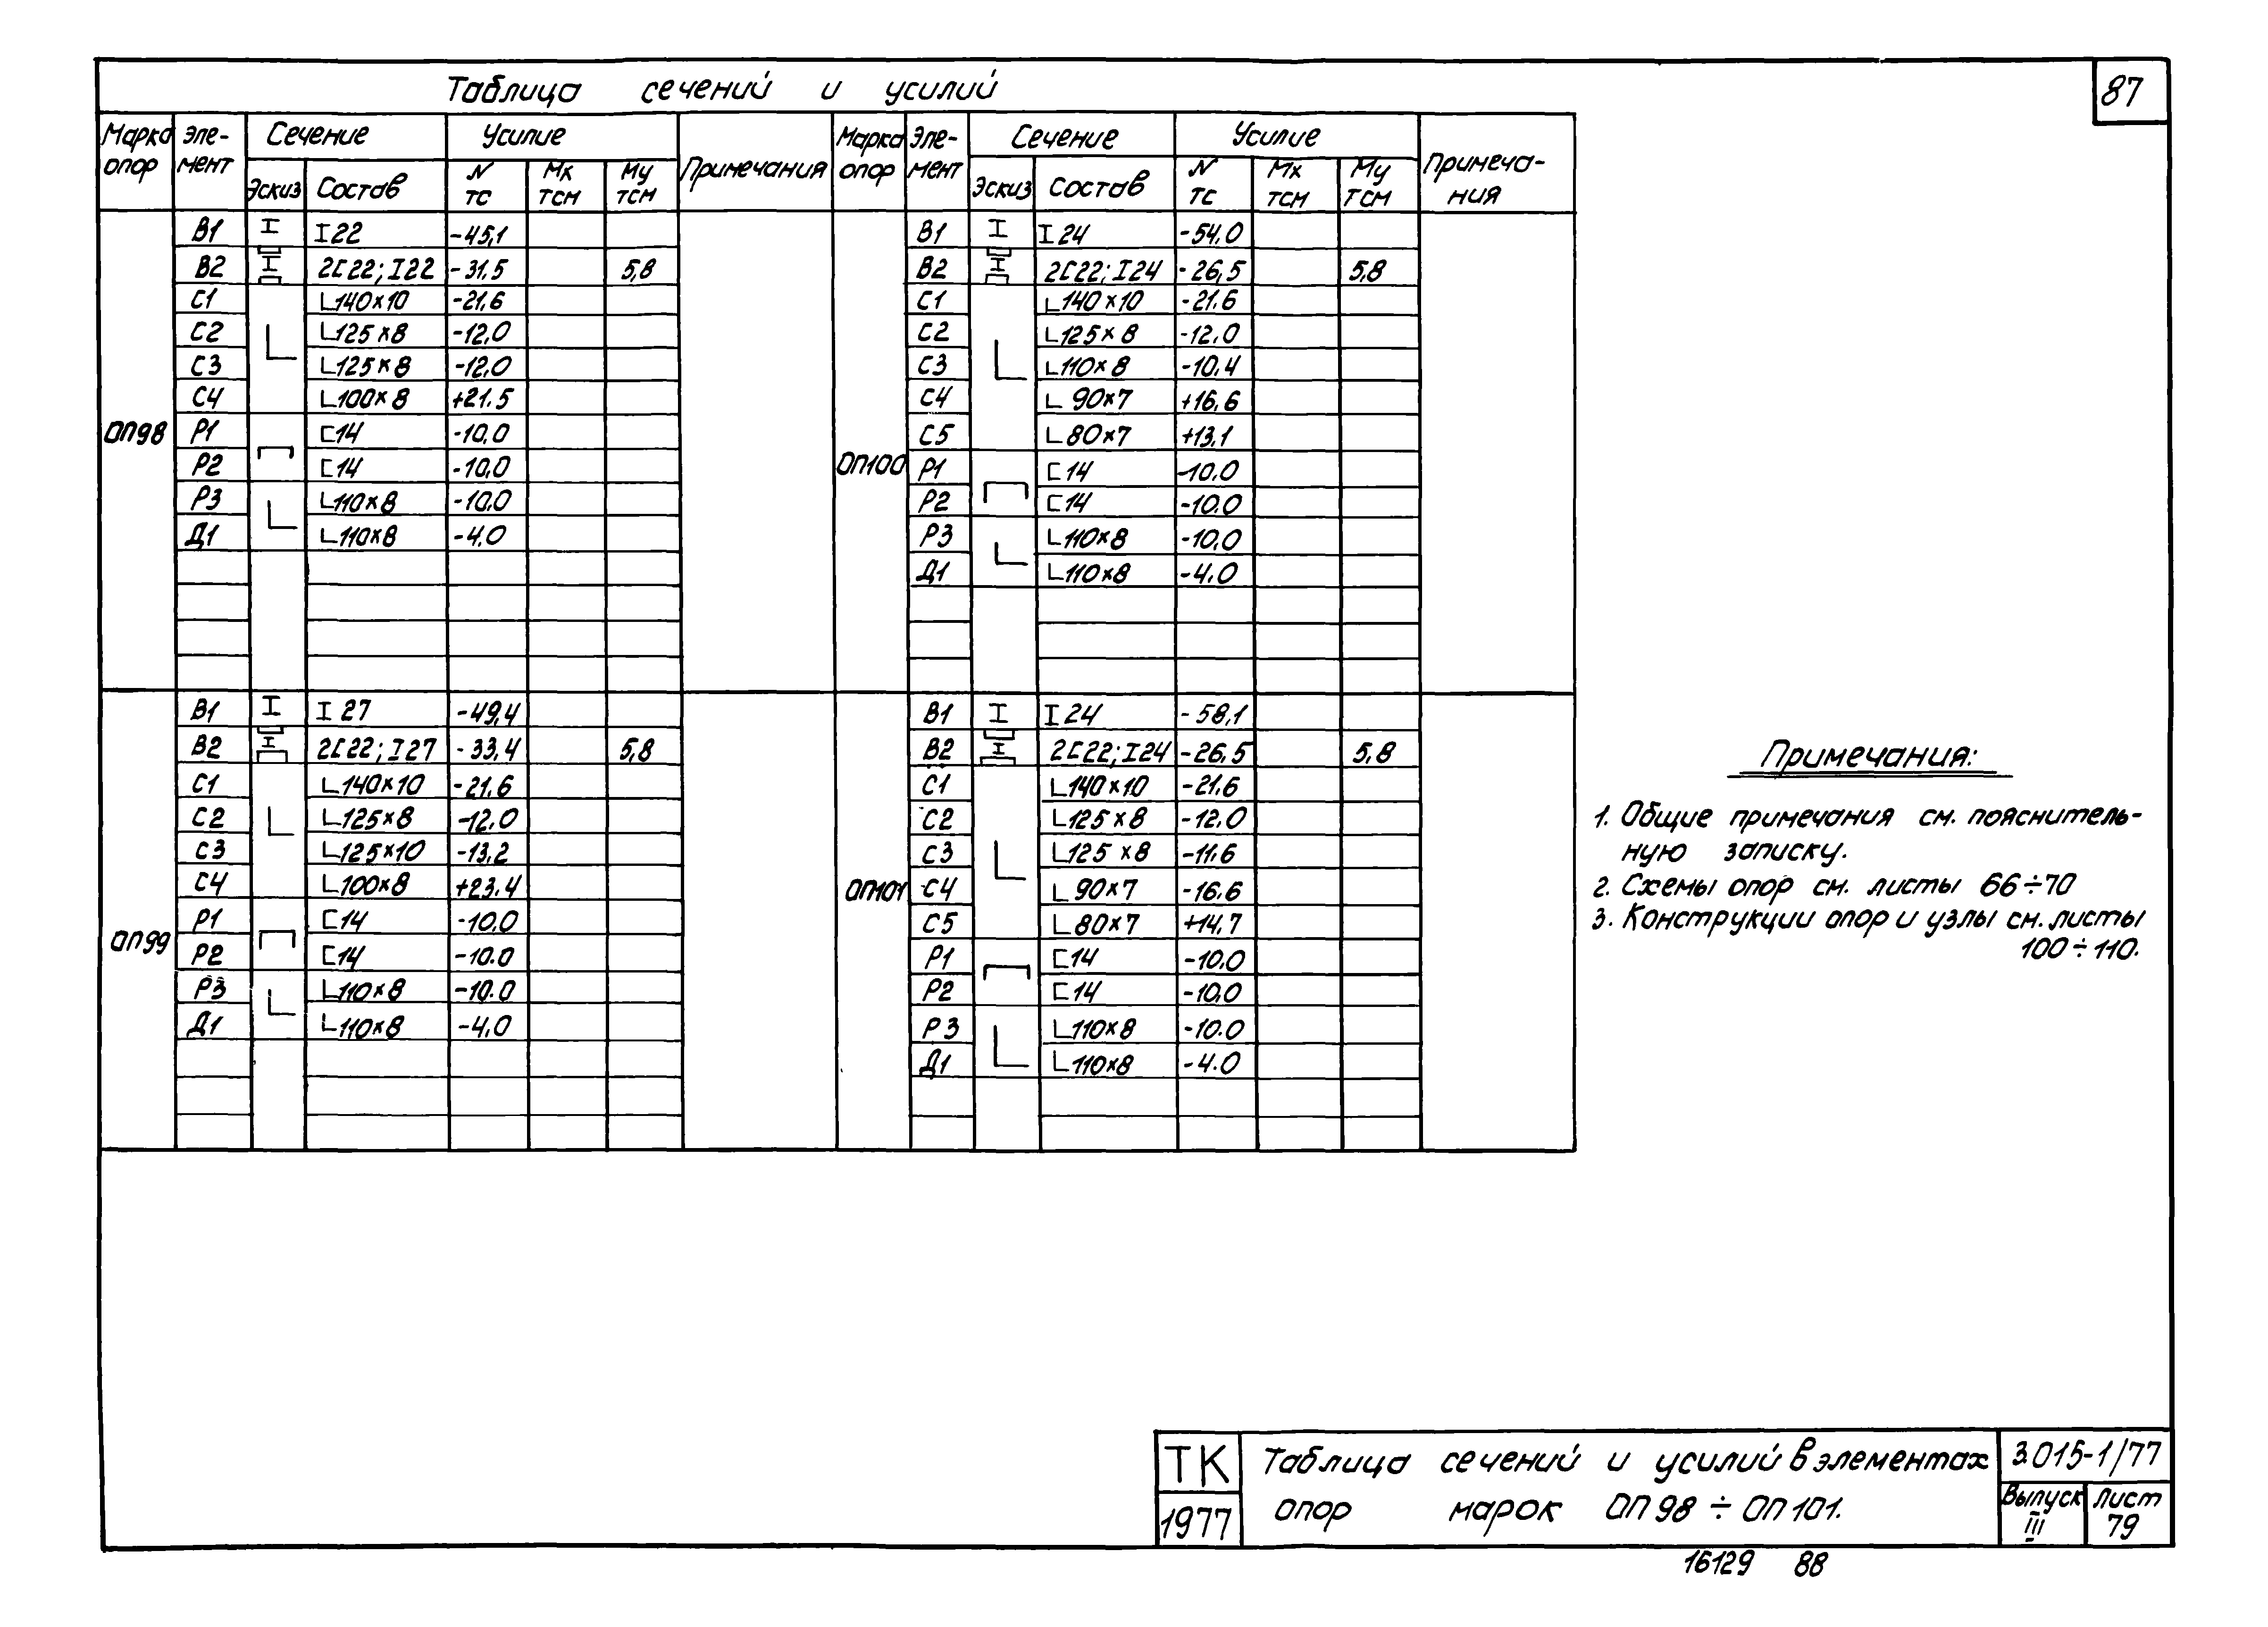 87
Таблица сечений и усилий
Марка опор | Эле-мент | Сечение | Усилие | Примечания | Марка опор | Эле-мент | Сечение | Усилие | Примеча-ния
Эскиз | Состав | N тс | Мх тсм | Му тсм | Эскиз | Состав | N тс | Мх тсм | Му тсм
ОП98
В1 I I22 -45,1
В2 2[22; I22 -31,5 5,8
С1 L140×10 -21,6
С2 L125×8 -12,0
С3 L125×8 -12,0
С4 L100×8 +21.5
Р1 [14 -10,0
Р2 [14 -10,0
Р3 L110×8 -10,0
Д1 L110×8 -4,0
ОП100
В1 I I24 -54,0
В2 2[22; I24 -26,5 5,8
С1 L140×10 -21.6
С2 L125×8 -12,0
С3 L110×8 -10,4
С4 L90×7 +16,6
С5 L80×7 +13,1
Р1 [14 -10,0
Р2 [14 -10,0
Р3 L110×8 -10,0
Д1 L110×8 -4,0
ОП99
В1 I I27 -49,4
В2 2[22; I27 -33,4 5,8
С1 L140×10 -21,6
С2 L125×8 -12,0
С3 L125×10 -13,2
С4 L100×8 +23.4
Р1 [14 -10,0
Р2 [14 -10.0
Р3 L110×8 -10.0
Д1 L110×8 -4,0
ОП101
В1 I I24 -58,1
В2 2[22; I24 -26,5 5,8
С1 L140×10 -21,6
С2 L125×8 -12,0
С3 L125×8 -11,6
С4 L90×7 -16.6
С5 L80×7 +14,7
Р1 [14 -10,0
Р2 [14 -10,0
Р3 L110×8 -10.0
Д1 L110×8 -4.0
Примечания:
1. Общие примечания см. пояснитель-
ную записку.
2. Схемы опор см. листы 66÷70
3. Конструкции опор и узлы см. листы
100÷110.
ТК
1977
Таблица сечений и усилий в элементах
опор марок ОП98 ÷ ОП101.
3.015-1/77
Выпуск III
Лист 79
16129 88